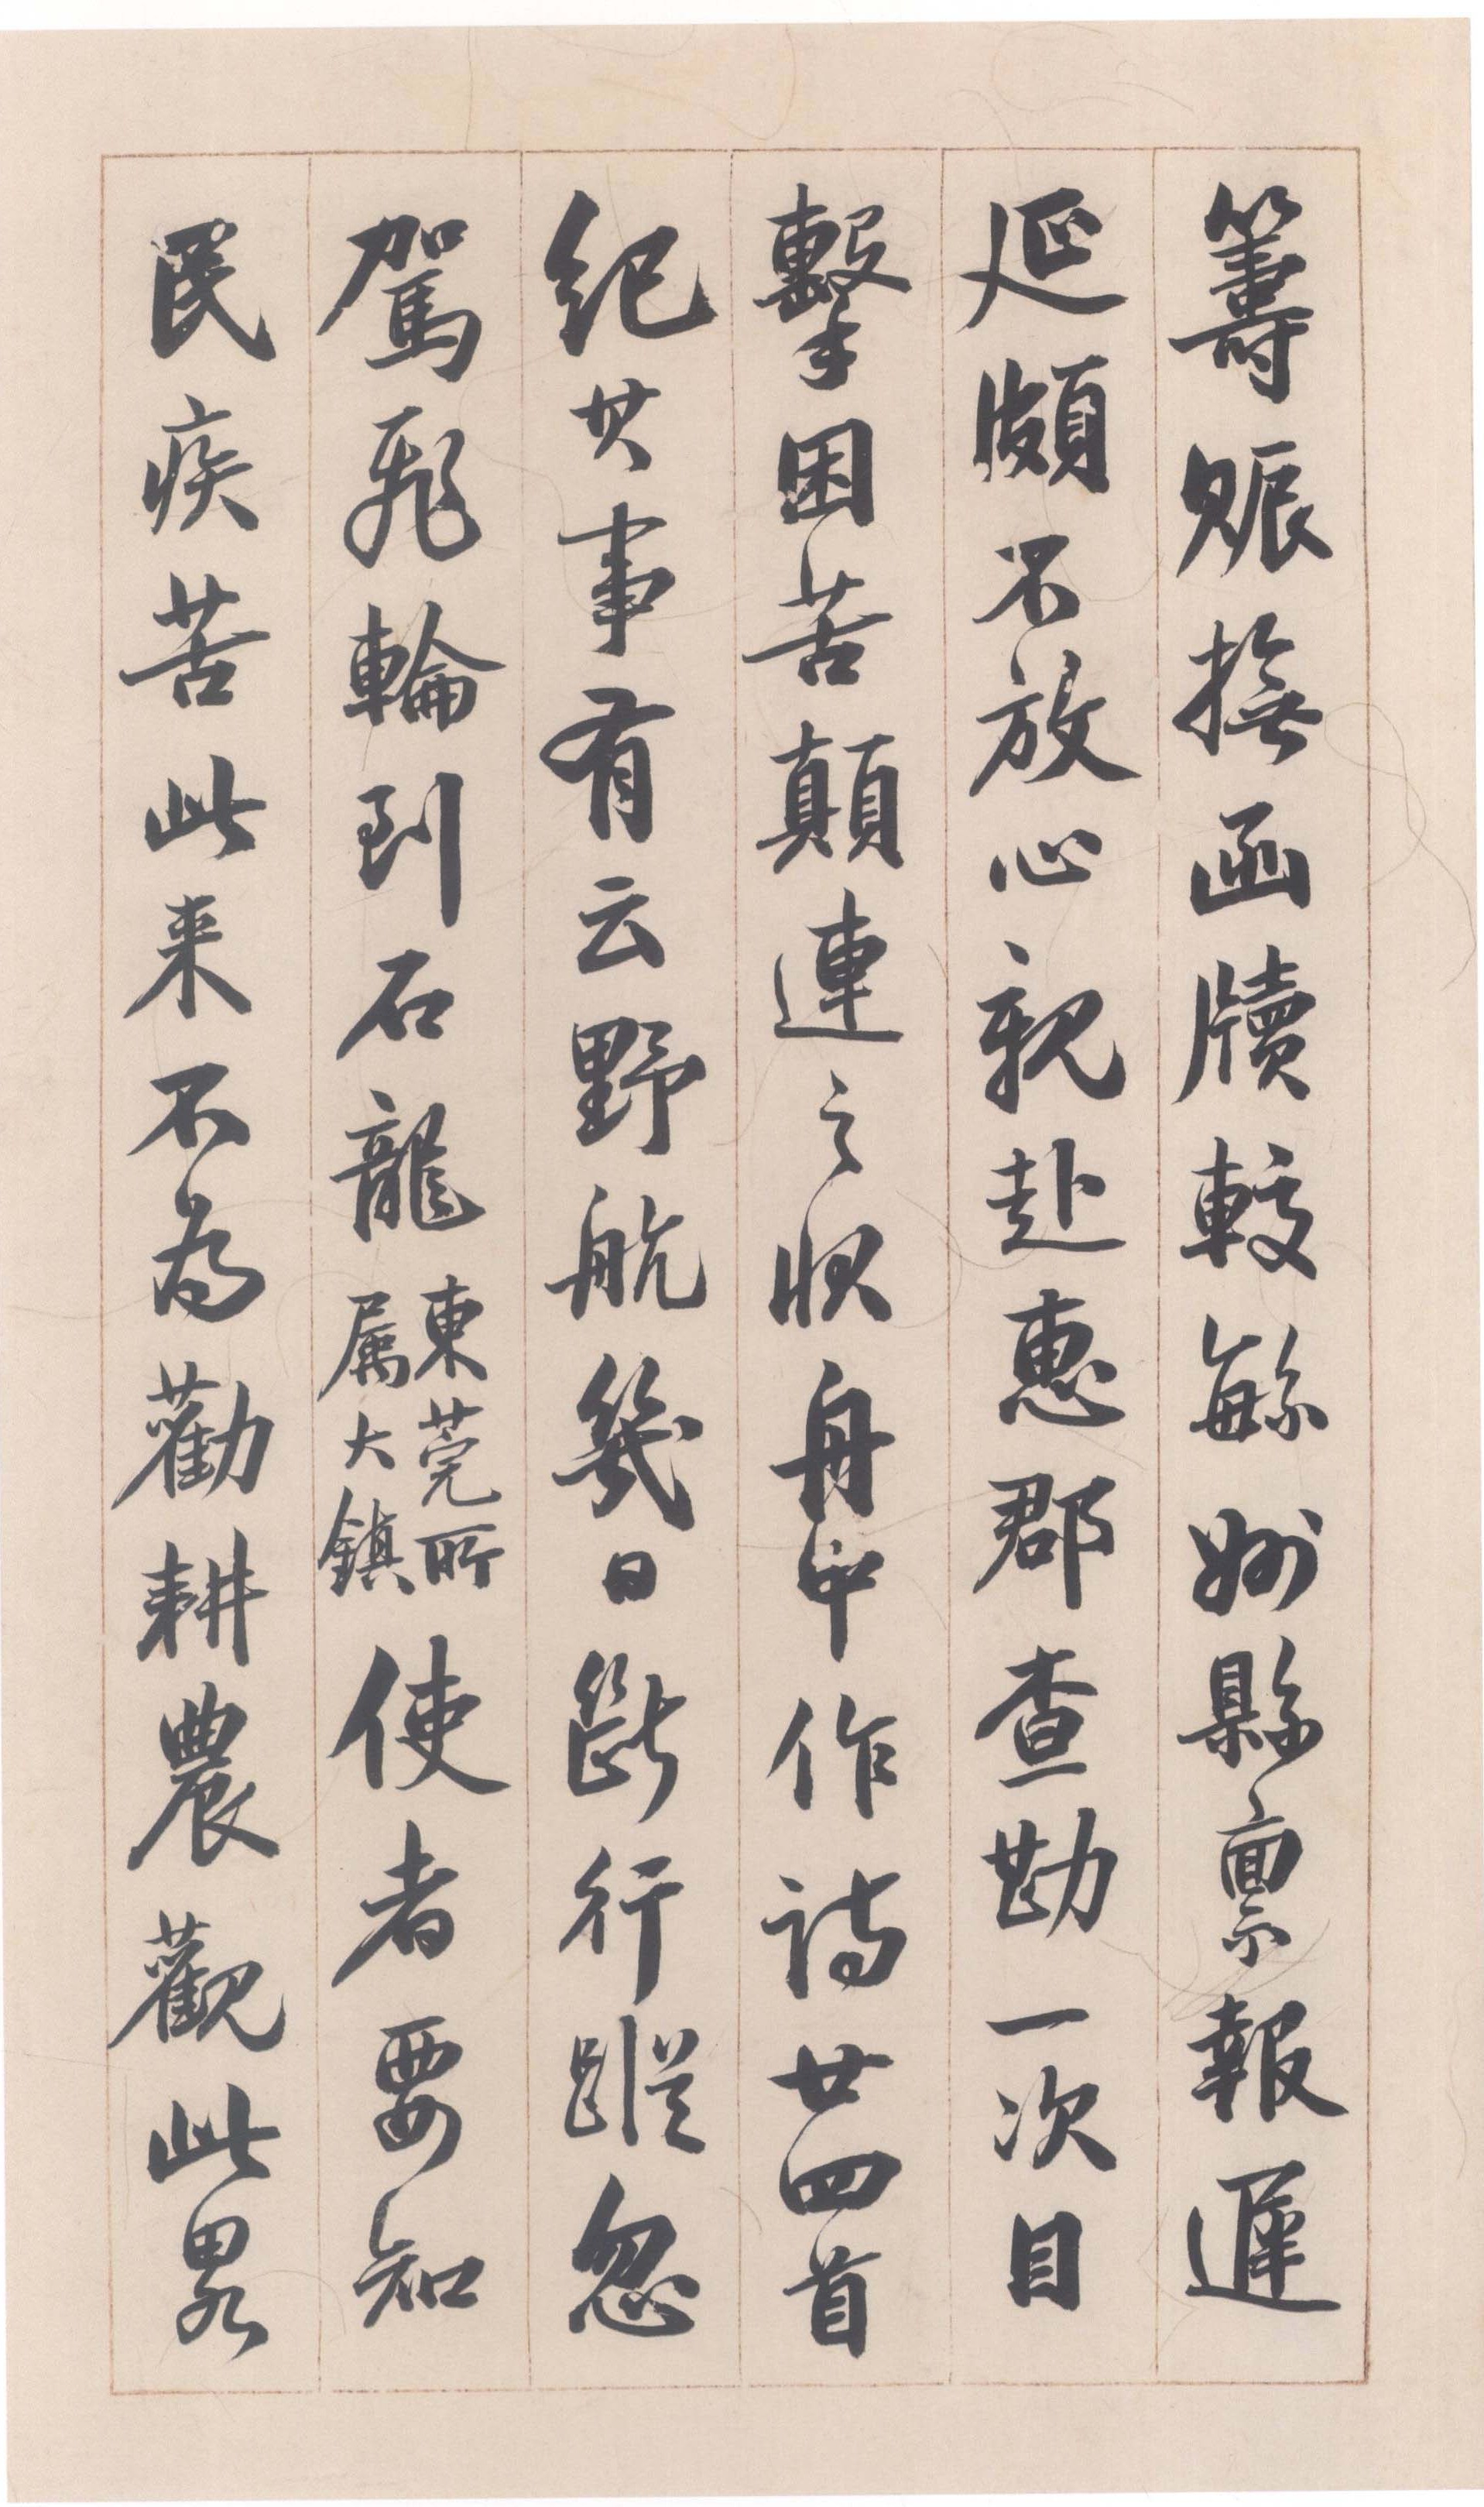 籌賑撫函牘較繇州縣稟報遲
延頗不放心親赴惠郡查勘一次目
擊困苦顛連之狀舟中作詩廿四首
紀其事有云野航幾日斷行蹤忽
駕飛輪到石龍東莞所屬大鎮使者要知
民疾苦此來不為勸耕農觀此畧